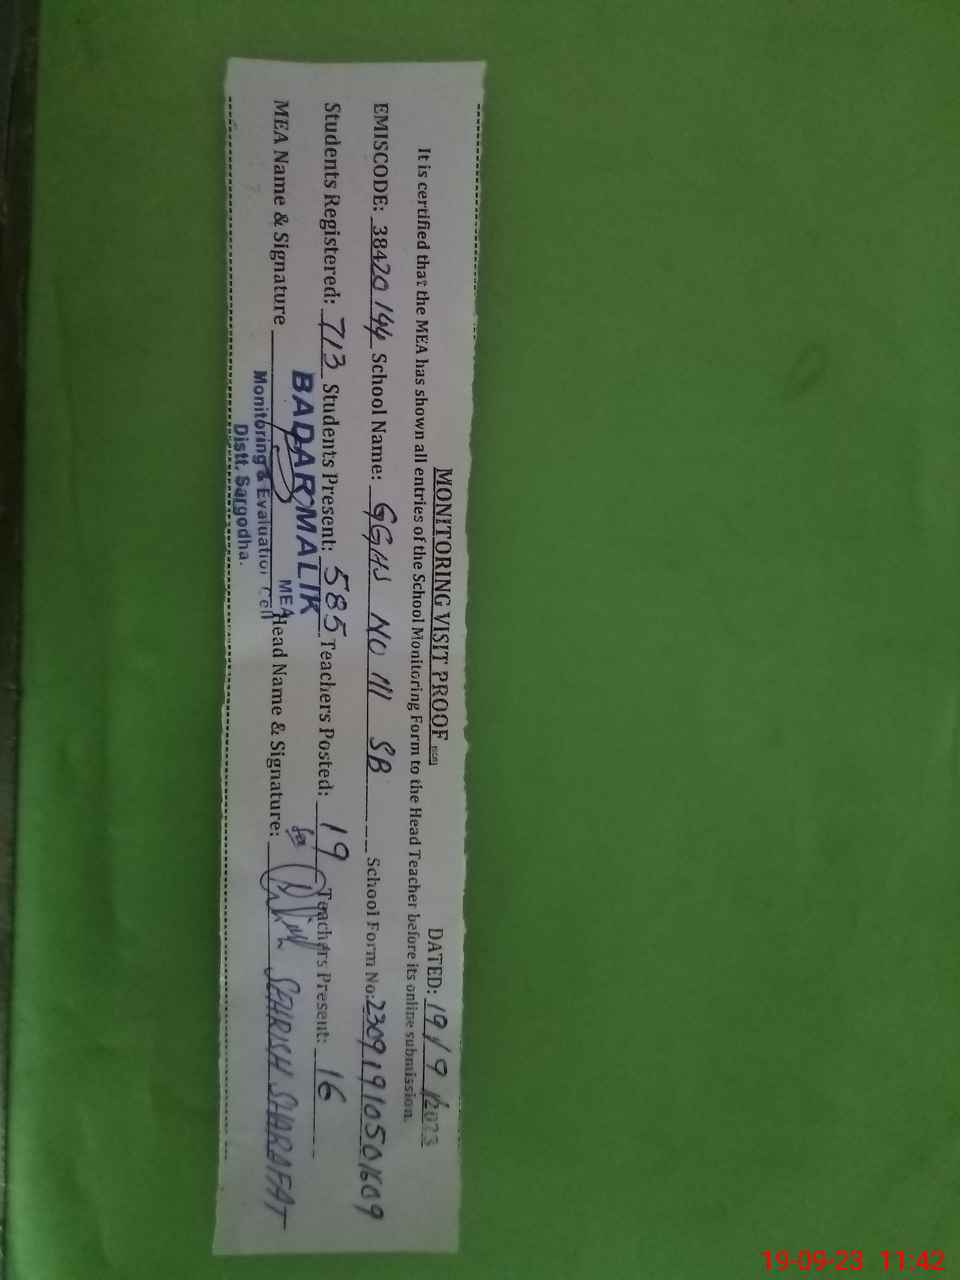 MONITORING VISIT PROOF DATED: 19/9/2023
It is certified that the MEA has shown all entries of the School Monitoring Form to the Head Teacher before its online submission.
EMISCODE: 38420144 School Name: GGHS NO III SB School Form No: 23091910501609
Students Registered: 713 Students Present: 585 Teachers Posted: 19 Teachers Present: 16
MEA Name & Signature Head Name & Signature: SEHRISH SHARAFAT
BADAR MALIK
MEA
Monitoring & Evaluation Cell
Distt. Sargodha.
19-09-23 11:42